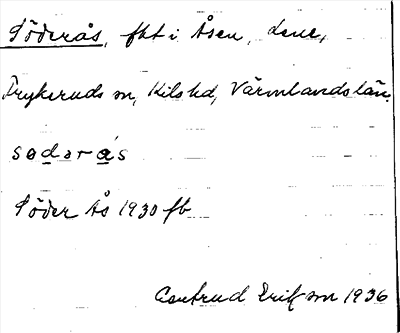 Söderås, fht i Åsen, dene,
Frykeruds sn, Kils hd, Värmlands län.
sødərás
Söder Ås 1930 fb
Gertrud Erikson 1936